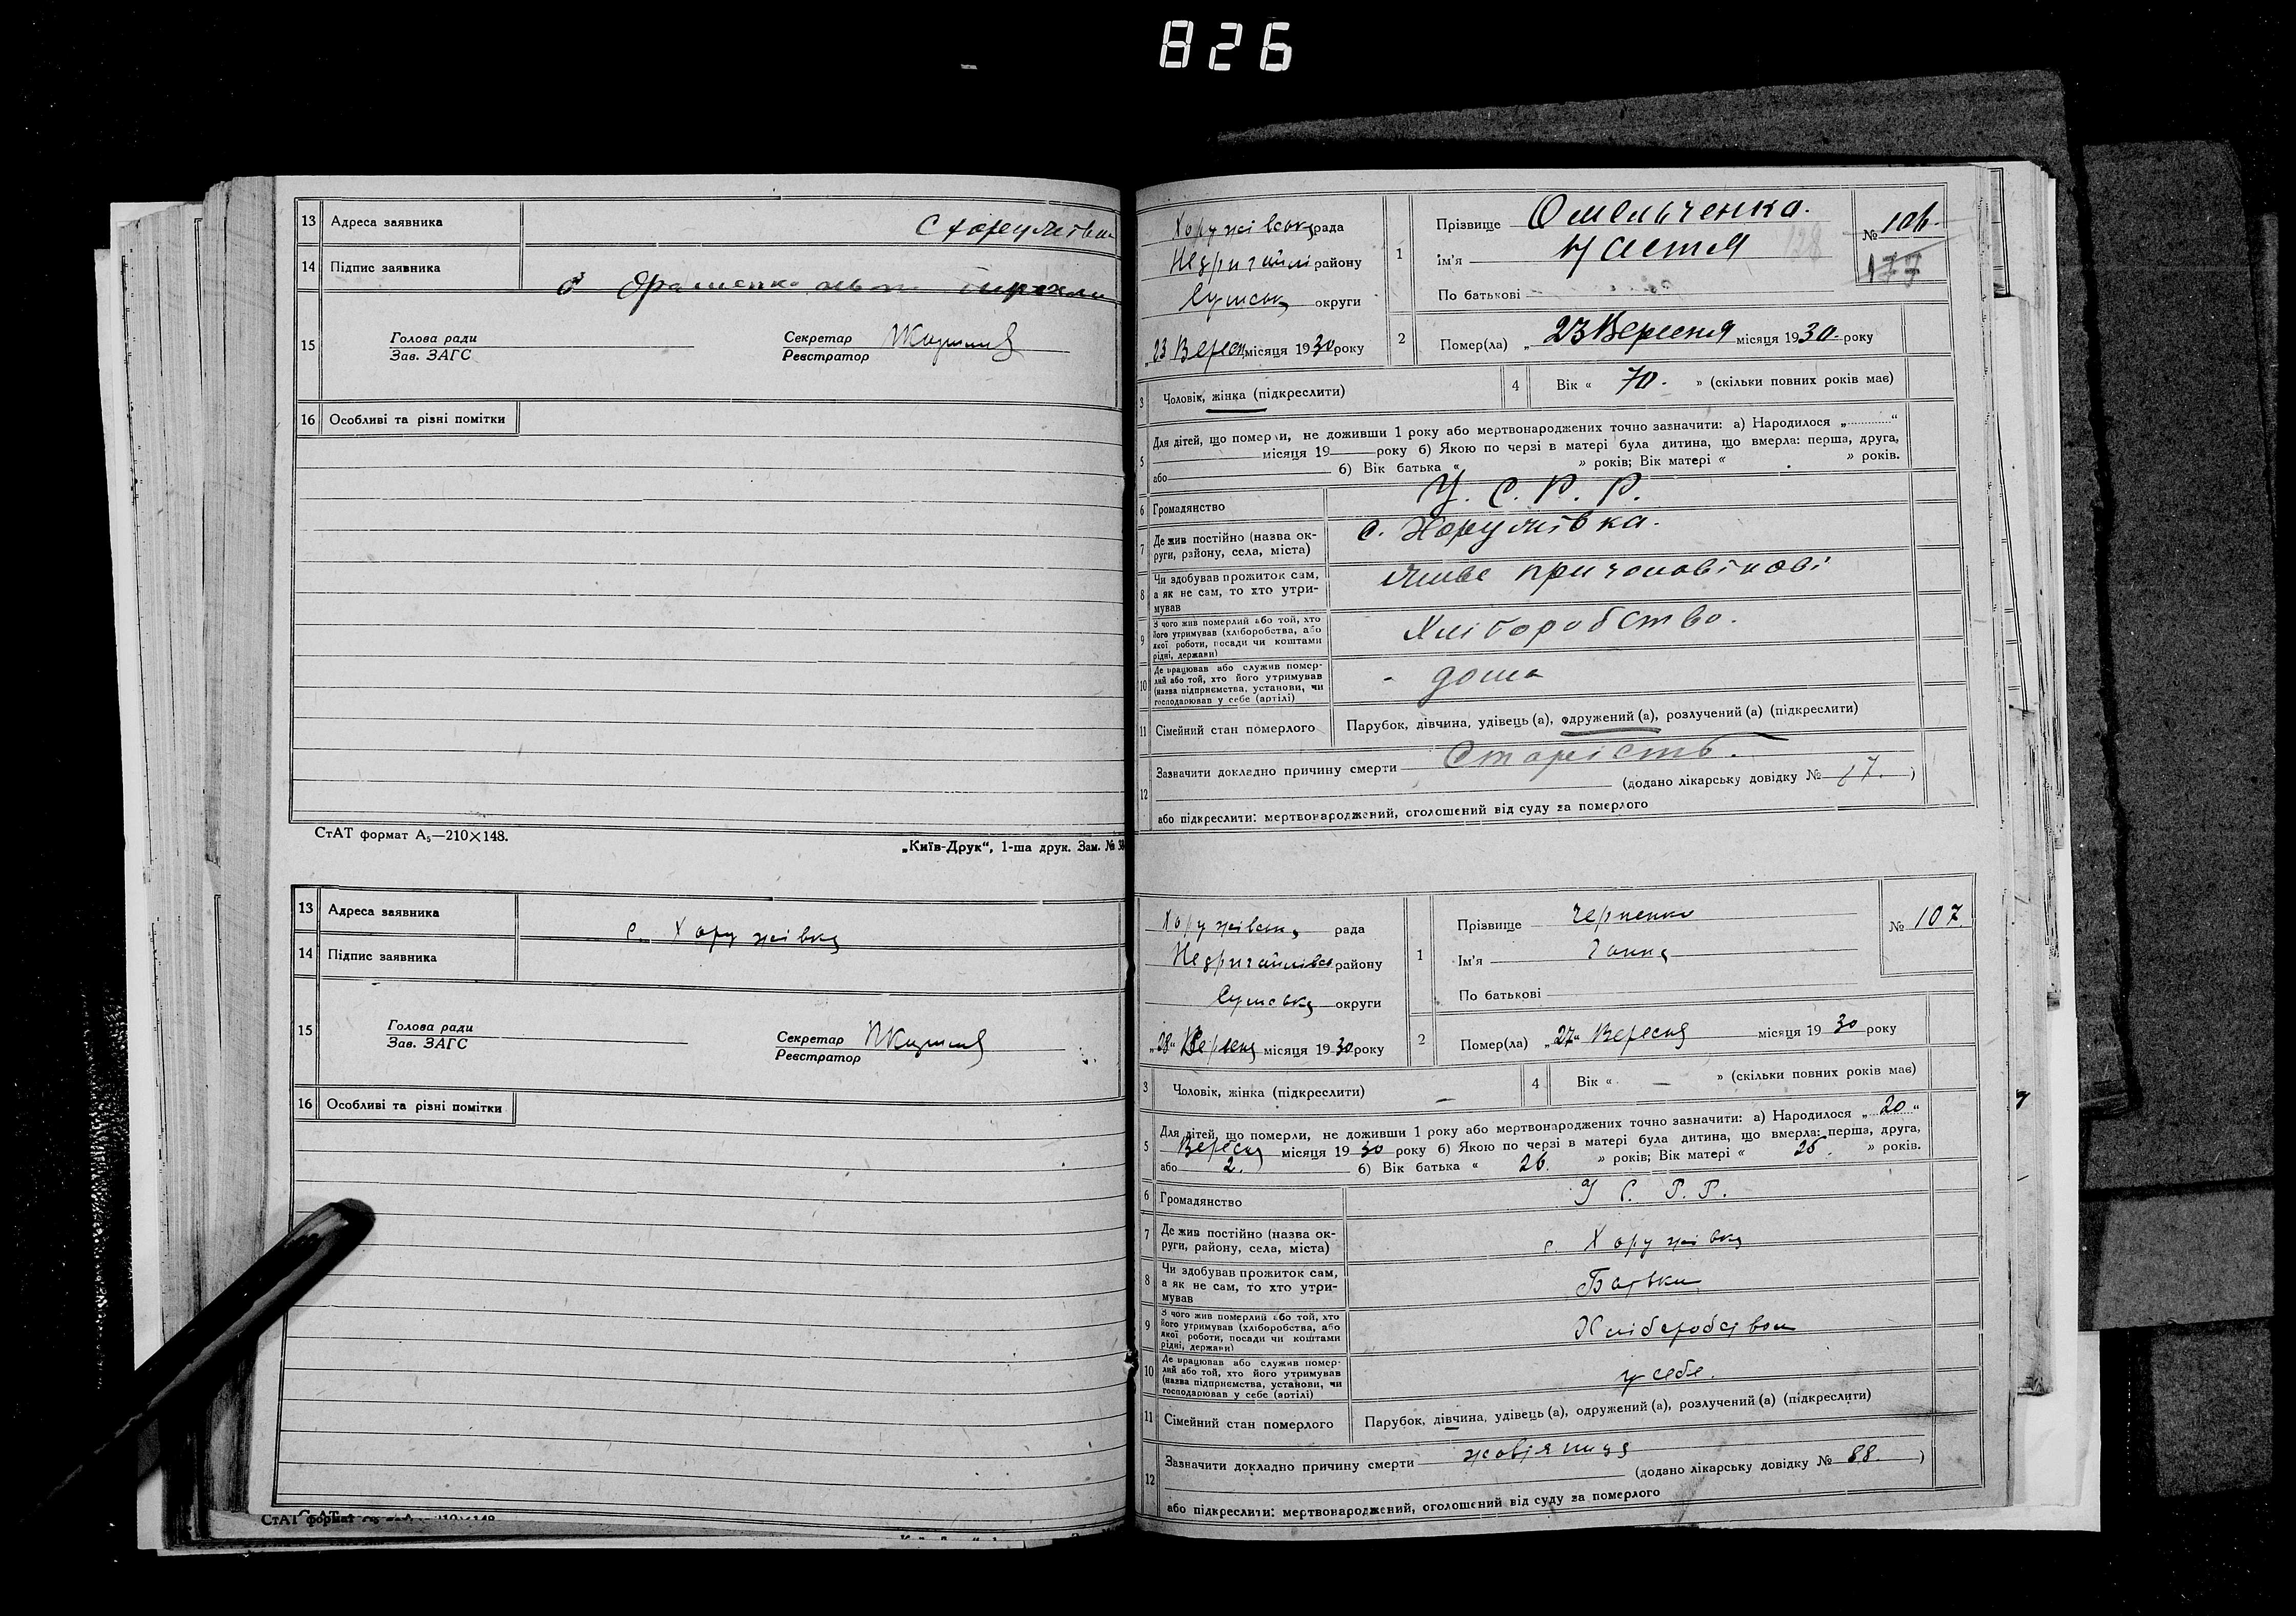 826
13 Адреса заявника с Хоружівка
14 Підпис заявника
15 Голова ради
Зав. ЗАГС
Секретар
Реєстратор
16 Особливі та різні помітки
СтАТ формат А₅—210×148.
„Київ-Друк“, 1-ша друк. Зам. №
13 Адреса заявника с. Хоружівка
14 Підпис заявника
15 Голова ради
Зав. ЗАГС
Секретар
Реєстратор
16 Особливі та різні помітки
СтАТ формат
Хоружівська рада
Недригайлів району
Сумська округи
„23 Вересн місяця 1930 року
1 Прізвище Омельченко.
Ім'я Настя 128
По батькові
№ 106.
177
2 Помер(ла) „23 Вересня місяця 1930 року
3 Чоловік, жінка (підкреслити)
4 Вік « 70. » (скільки повних років має)
5 Для дітей, що померли, не доживши 1 року або мертвонароджених точно зазначити: а) Народилося „ “
місяця 19 року б) Якою по черзі в матері була дитина, що вмерла: перша, друга,
або б) Вік батька « » років; Вік матері « » років.
6 Громадянство У. С. Р. Р.
7 Де жив постійно (назва округи, району, села, міста) с. Хоружівка.
8 Чи здобував прожиток сам, а як не сам, то хто утримував живе при чоловікові
9 З чого жив померлий або той, хто його утримував (хліборобства, або якої роботи, посади чи коштами рідні, держави) Хліборобство.
10 Де працював або служив померлий або той, хто його утримував (назва підприємства, установи, чи господарював у себе (артілі) - дома
11 Сімейний стан померлого Парубок, дівчина, удівець (а), одружений (а), розлучений (а) (підкреслити)
12 Зазначити докладно причину смерти Старість.
(додано лікарську довідку № 17. )
або підкреслити: мертвонароджений, оголошений від суду за померлого
Хоружівська рада
Недригайлівс району
Сумська округи
„28“ Вересня місяця 1930 року
1 Прізвище Черненко
Ім'я Ганна
По батькові
№ 107.
2 Помер(ла) „27“ Вересня місяця 1930 року
3 Чоловік, жінка (підкреслити)
4 Вік « — » (скільки повних років має)
5 Для дітей, що померли, не доживши 1 року або мертвонароджених точно зазначити: а) Народилося „ 20 “
Вересня місяця 1930 року б) Якою по черзі в матері була дитина, що вмерла: перша, друга,
або 2. б) Вік батька « 26. » років; Вік матері « 25. » років.
6 Громадянство У С. Р. Р.
7 Де жив постійно (назва округи, району, села, міста) с. Хоружівка
8 Чи здобував прожиток сам, а як не сам, то хто утримував Батьки
9 З чого жив померлий або той, хто його утримував (хліборобства, або якої роботи, посади чи коштами рідні, держави) Хліборобством
10 Де працював або служив померлий або той, хто його утримував (назва підприємства, установи, чи господарював у себе (артілі) у себе.
11 Сімейний стан померлого Парубок, дівчина, удівець (а), одружений (а), розлучений (а) (підкреслити)
12 Зазначити докладно причину смерти жовтяниця
(додано лікарську довідку № 88. )
або підкреслити: мертвонароджений, оголошений від суду за померлого